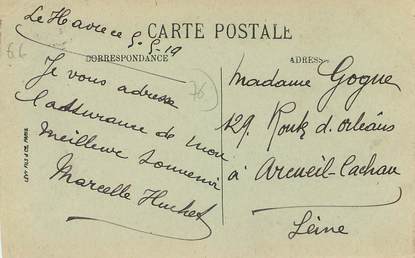 Le Havre 5-5-19
CARTE POSTALE
66
CORRESPONDANCE
ADRESSE
Je vous adresse
l'assurance de mon
meilleur souvenir
Marcelle Huchet
76
Madame Gogue
129. Route d'orléans
à Arcueil-Cachan
Seine
LÉVY FILS & CIE, PARIS